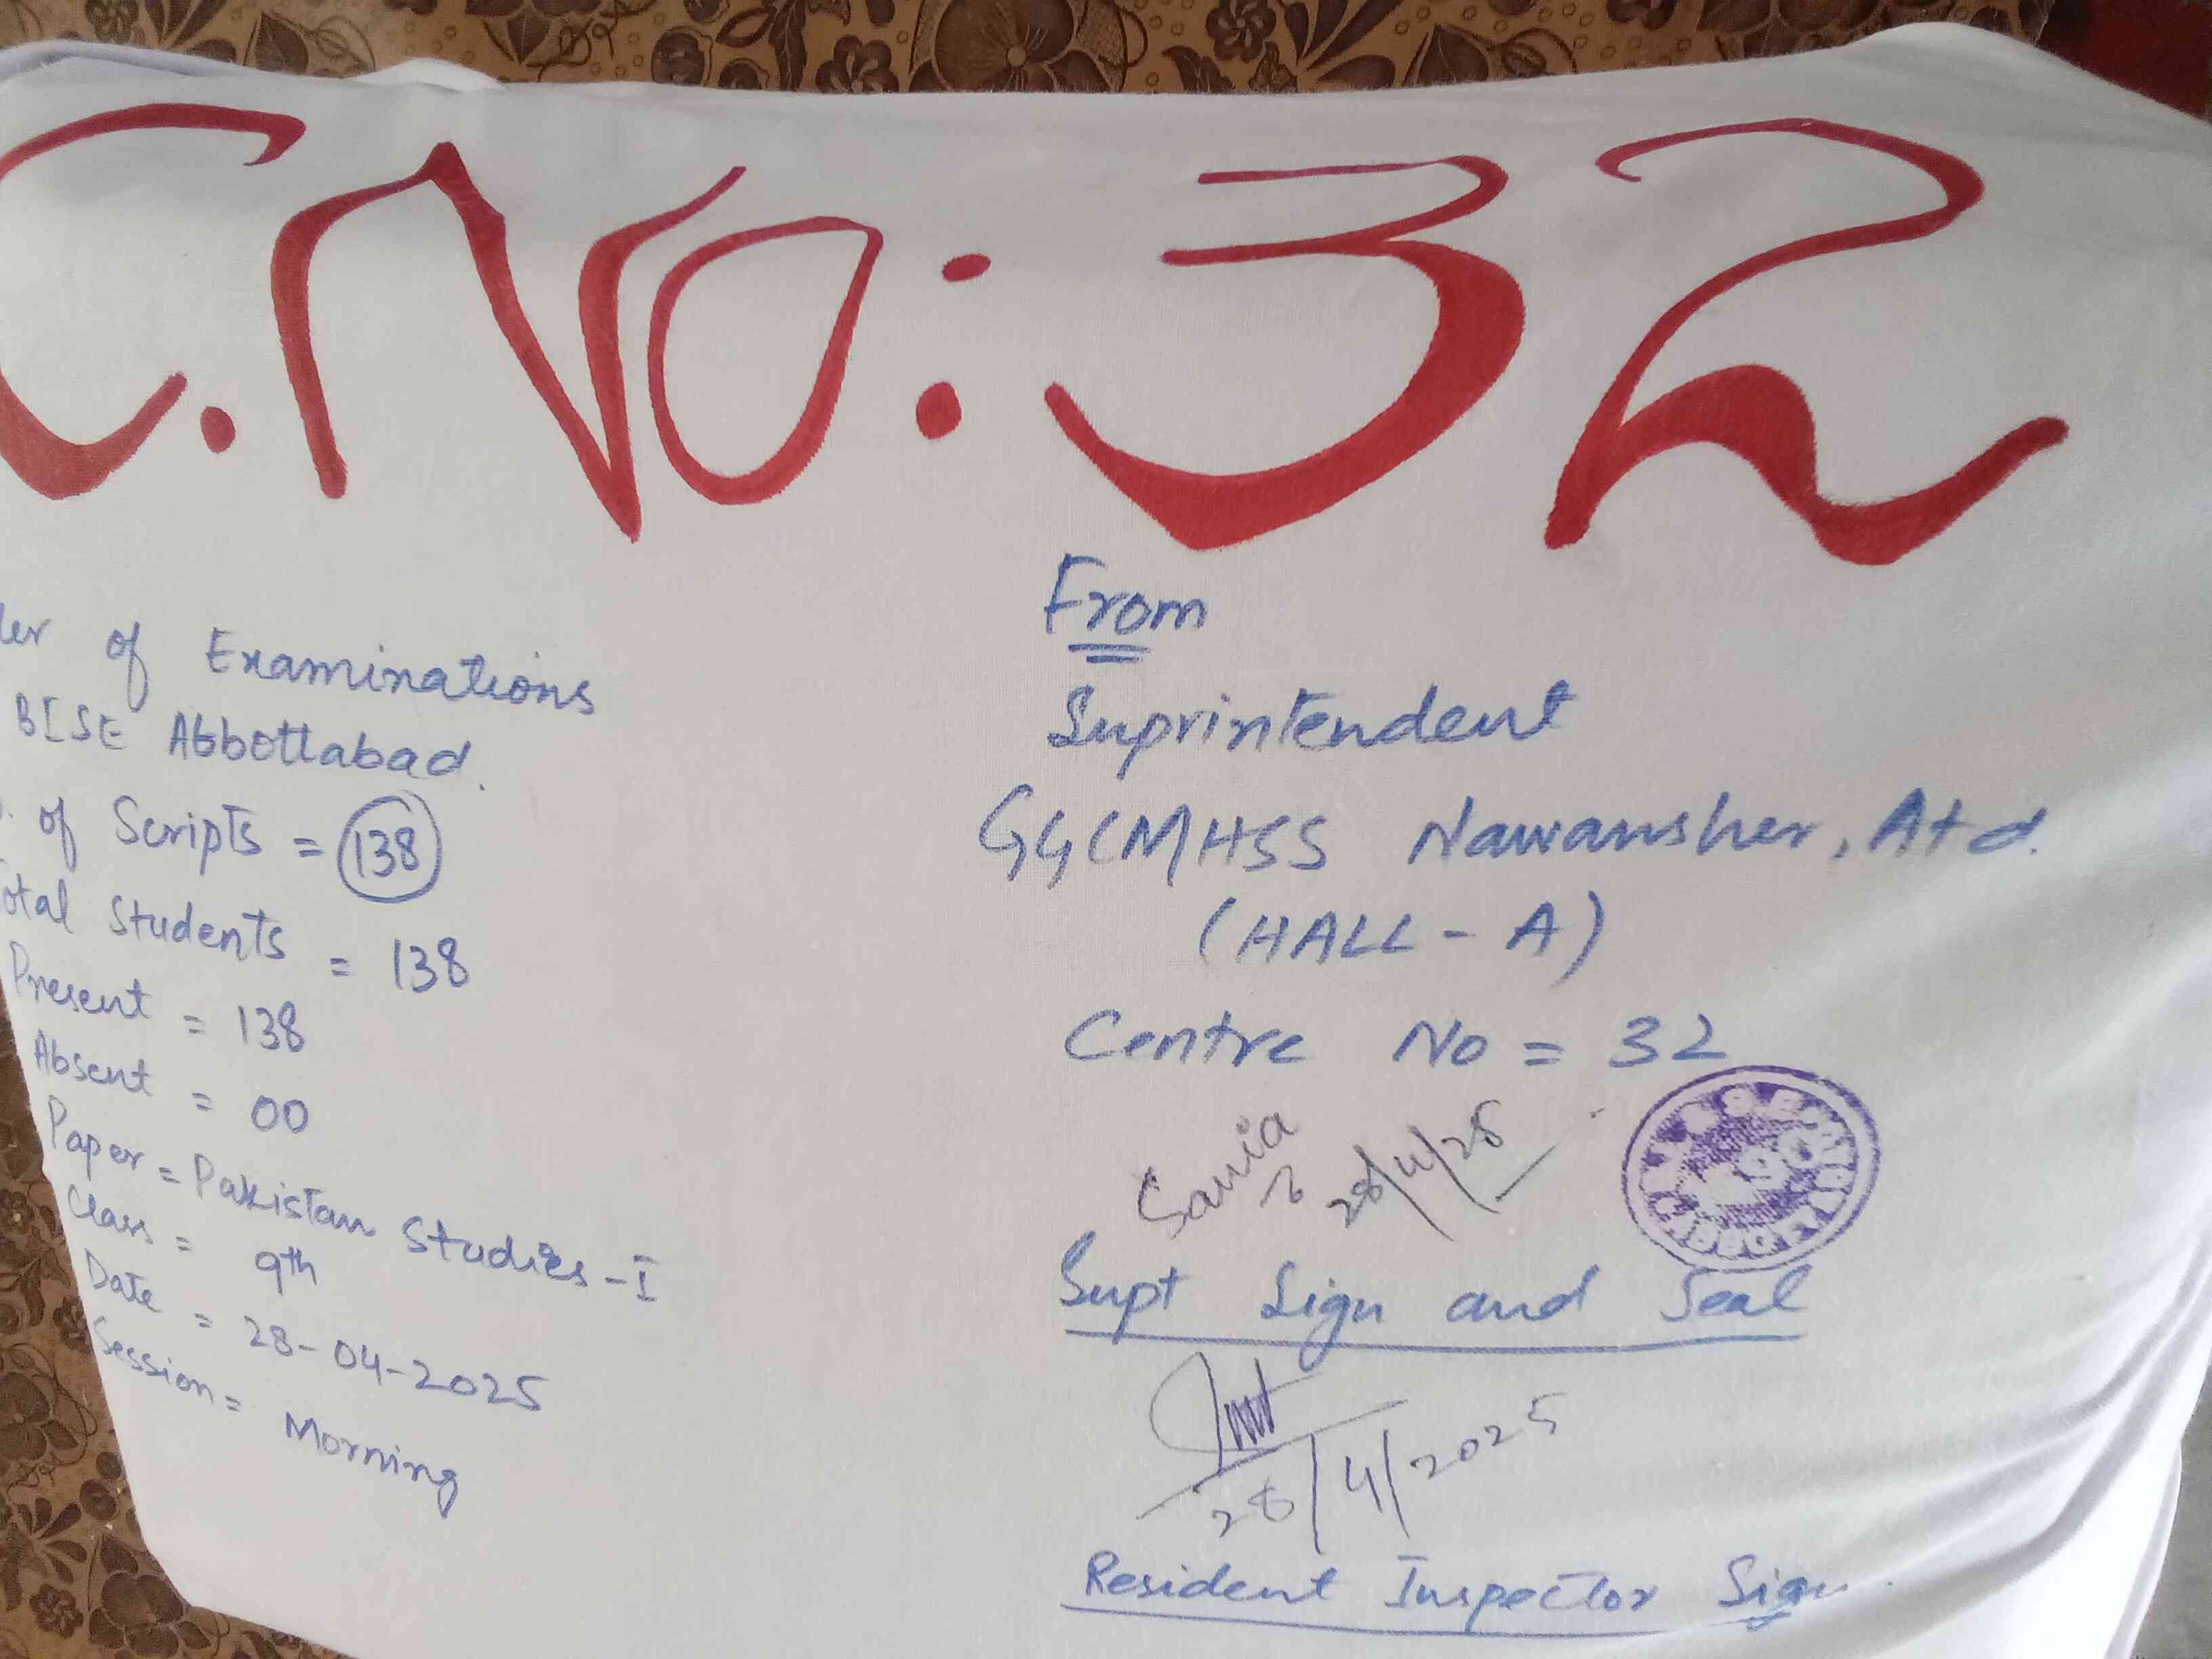 C.No: 32
ler of Examinations
BISE Abbottabad.
of Scripts = 138
otal Students = 138
Present = 138
Absent = 00
Paper = Pakistan Studies - I
Class = 9th
Date = 28-04-2025
Session = Morning
From
Suprintendent
GGCMHSS Nawansher, Atd.
(HALL - A)
Centre No = 32
Sania
28/4/25
Supt Sign and Seal
28/4/2025
Resident Inspector Sign